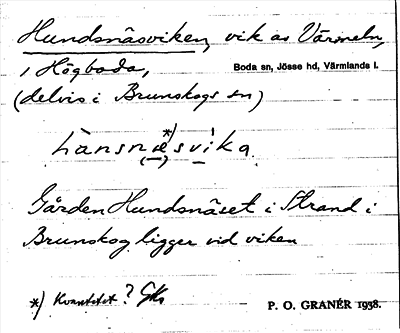 Hundsnäsviken, vik av Värmeln,
i Högboda, Boda sn, Jösse hd, Värmlands l.
(delvis i Brunskogs sn)
hànsnæ*)svika
Gården Hundsnäset i Strand i
Brunskog ligger vid viken
*) Kvantitet? GKs
P. O. GRANÉR 1938.